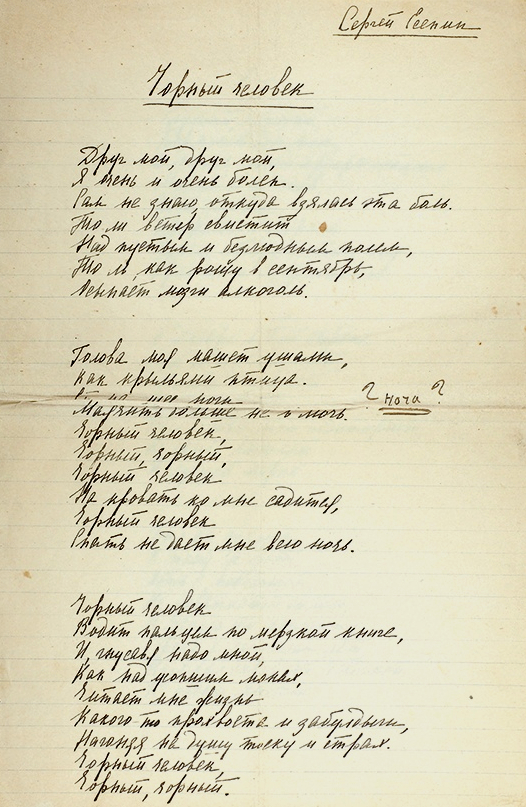 Сергей Есенин
Чорный человек
Друг мой, друг мой,
Я очень и очень болен.
Сам не знаю откуда взялась эта боль.
То ли ветер свистит
Над пустым и безлюдным полем,
То ль, как рощу в сентябрь,
Осыпает мозги алкоголь.
Голова моя машет ушами,
Как крыльями птица.
ноги
? ноча ?
Маячить больше не в мочь.
Чорный человек,
Чорный, чорный,
Чорный человек
На кровать ко мне садится,
Чорный человек
Спать не дает мне всю ночь.
Чорный человек
Водит пальцем по мерзкой книге,
И гнусавя надо мной,
Как над усопшим монах,
Читает мне жизнь
Какого то прохвоста и забулдыги,
Нагоняя на душу тоску и страх.
Чорный человек,
Чорный, чорный.